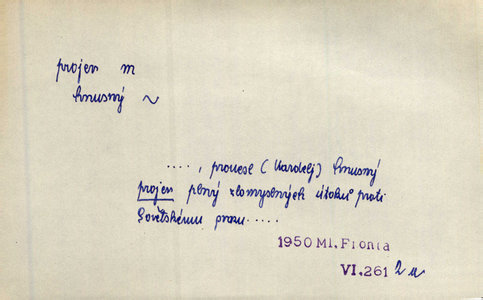 projev m
hnusný ~
....., pronesl (Kardelj) hnusný
projev plný zlomyslných útoků proti
Sovětskému svazu.....
1950 Ml. Fronta
VI. 261 2a